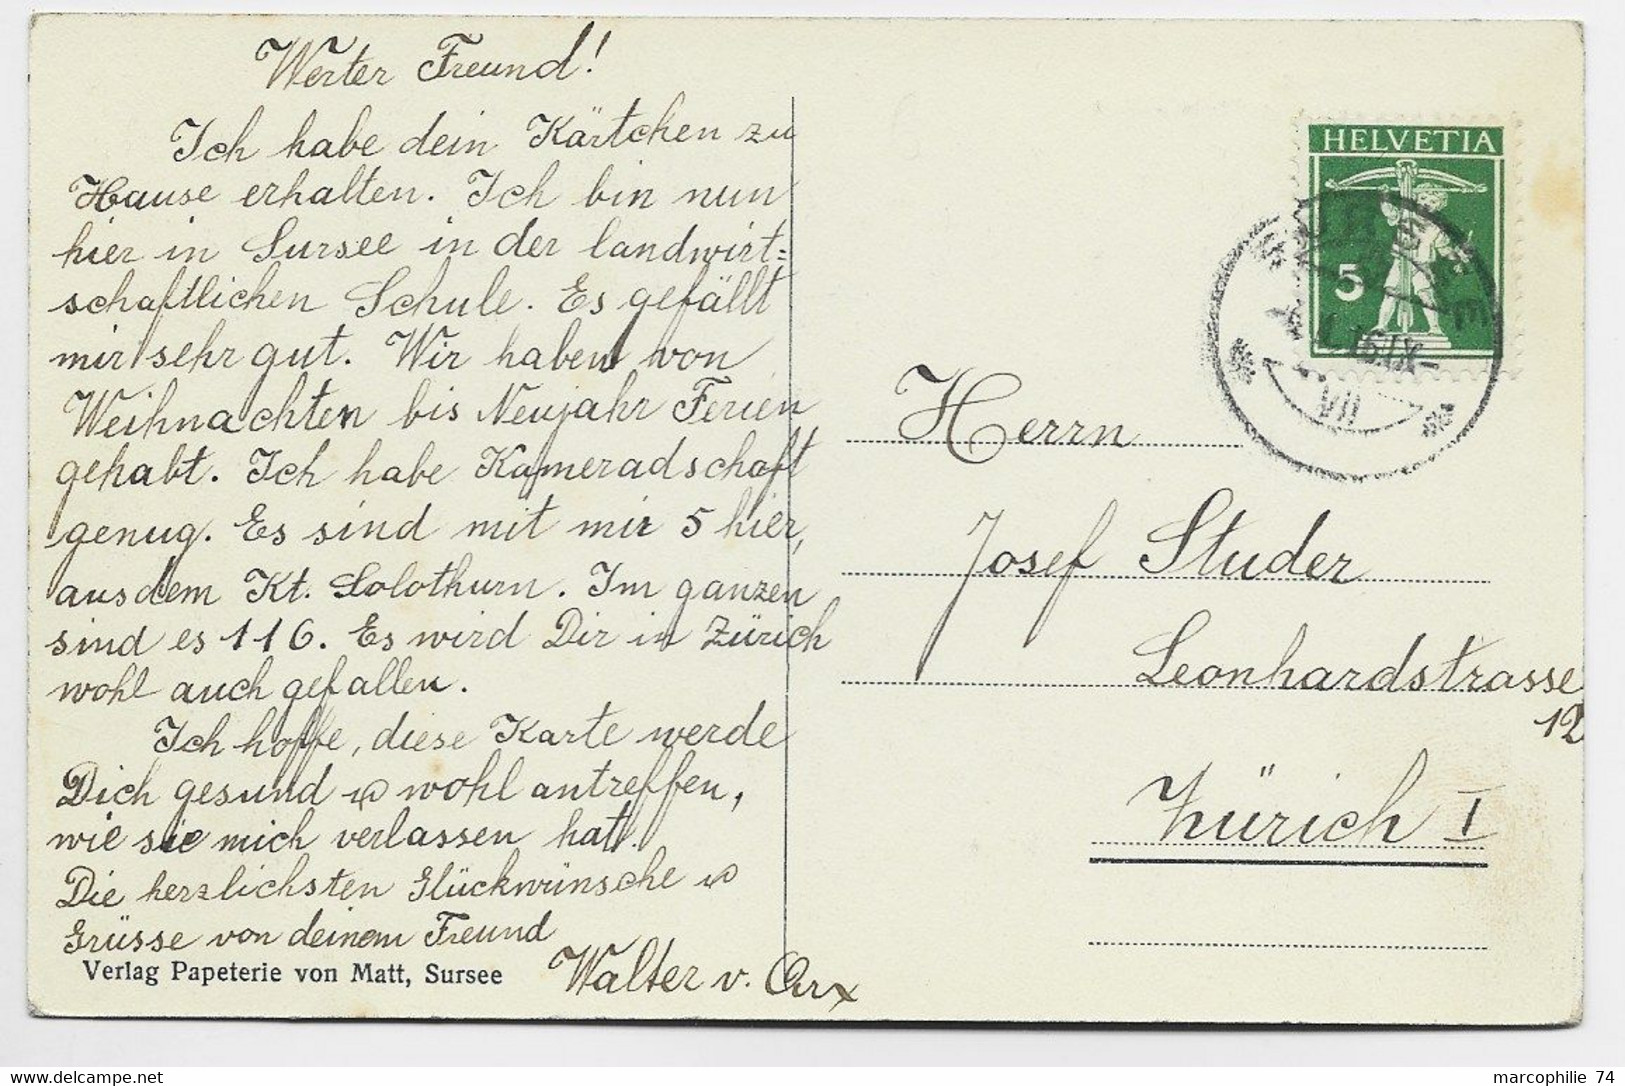 Werter Freund!
Ich habe dein Kärtchen zu
Hause erhalten. Ich bin nun
hier in Sursee in der landwirt=
schaftlichen Schule. Es gefällt
mir sehr gut. Wir haben von
Weihnachten bis Neujahr Ferien
gehabt. Ich habe Kameradschaft
genug. Es sind mit mir 5 hier,
aus dem Kt. Solothurn. Im ganzen
sind es 116. Es wird Dir in Zürich
wohl auch gefallen.
Ich hoffe, diese Karte werde
Dich gesund u wohl antreffen,
wie sie mich verlassen hat.
Die herzlichsten Glückwünsche u
Grüsse von deinem Freund
Walter v. Arx
Verlag Papeterie von Matt, Sursee
HELVETIA
5
SURSEE
VII
Herrn
Josef Studer
Leonhardstrasse
12
Zürich I
marcophilie 74